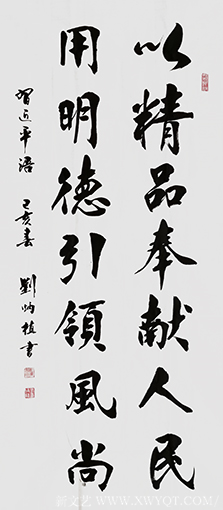 以精品奉献人民
用明德引領風尚
習近平语 己亥春 劉炳植書
新文艺 WWW.XWYQT.COM